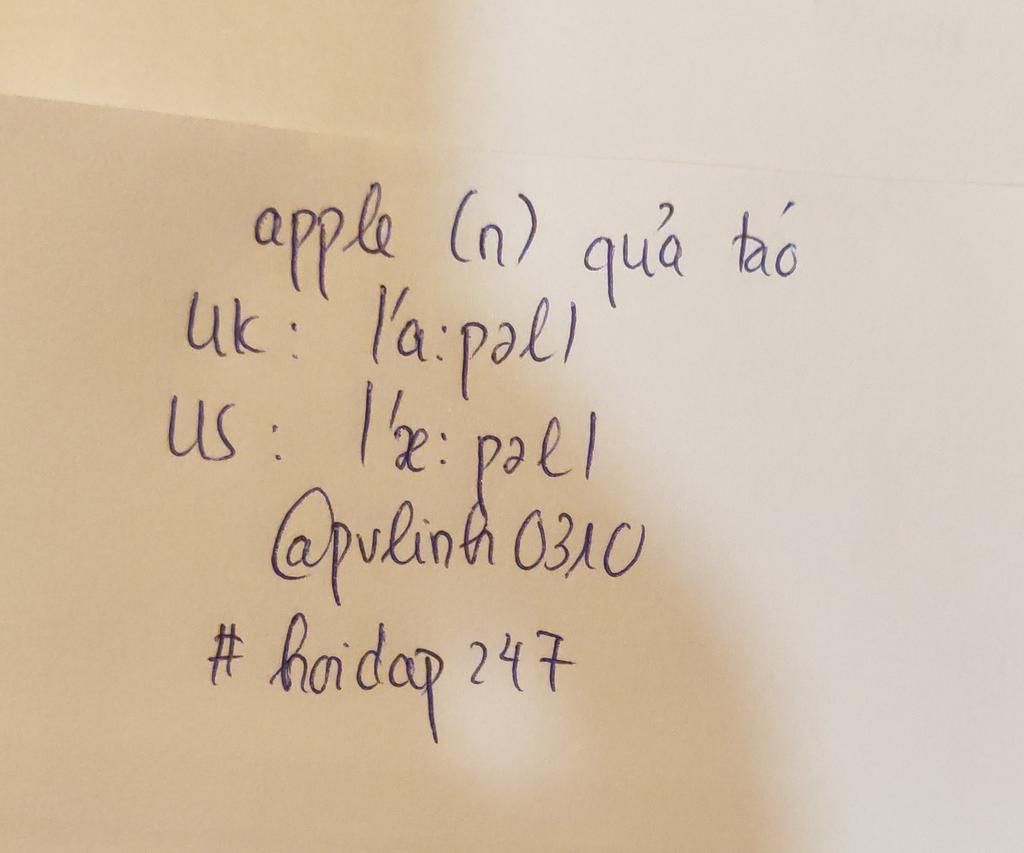 apple (n) quả táo
UK: /'a:pəl/
US: /'æ:pəl/
@pvlinh0310
#hoidap247